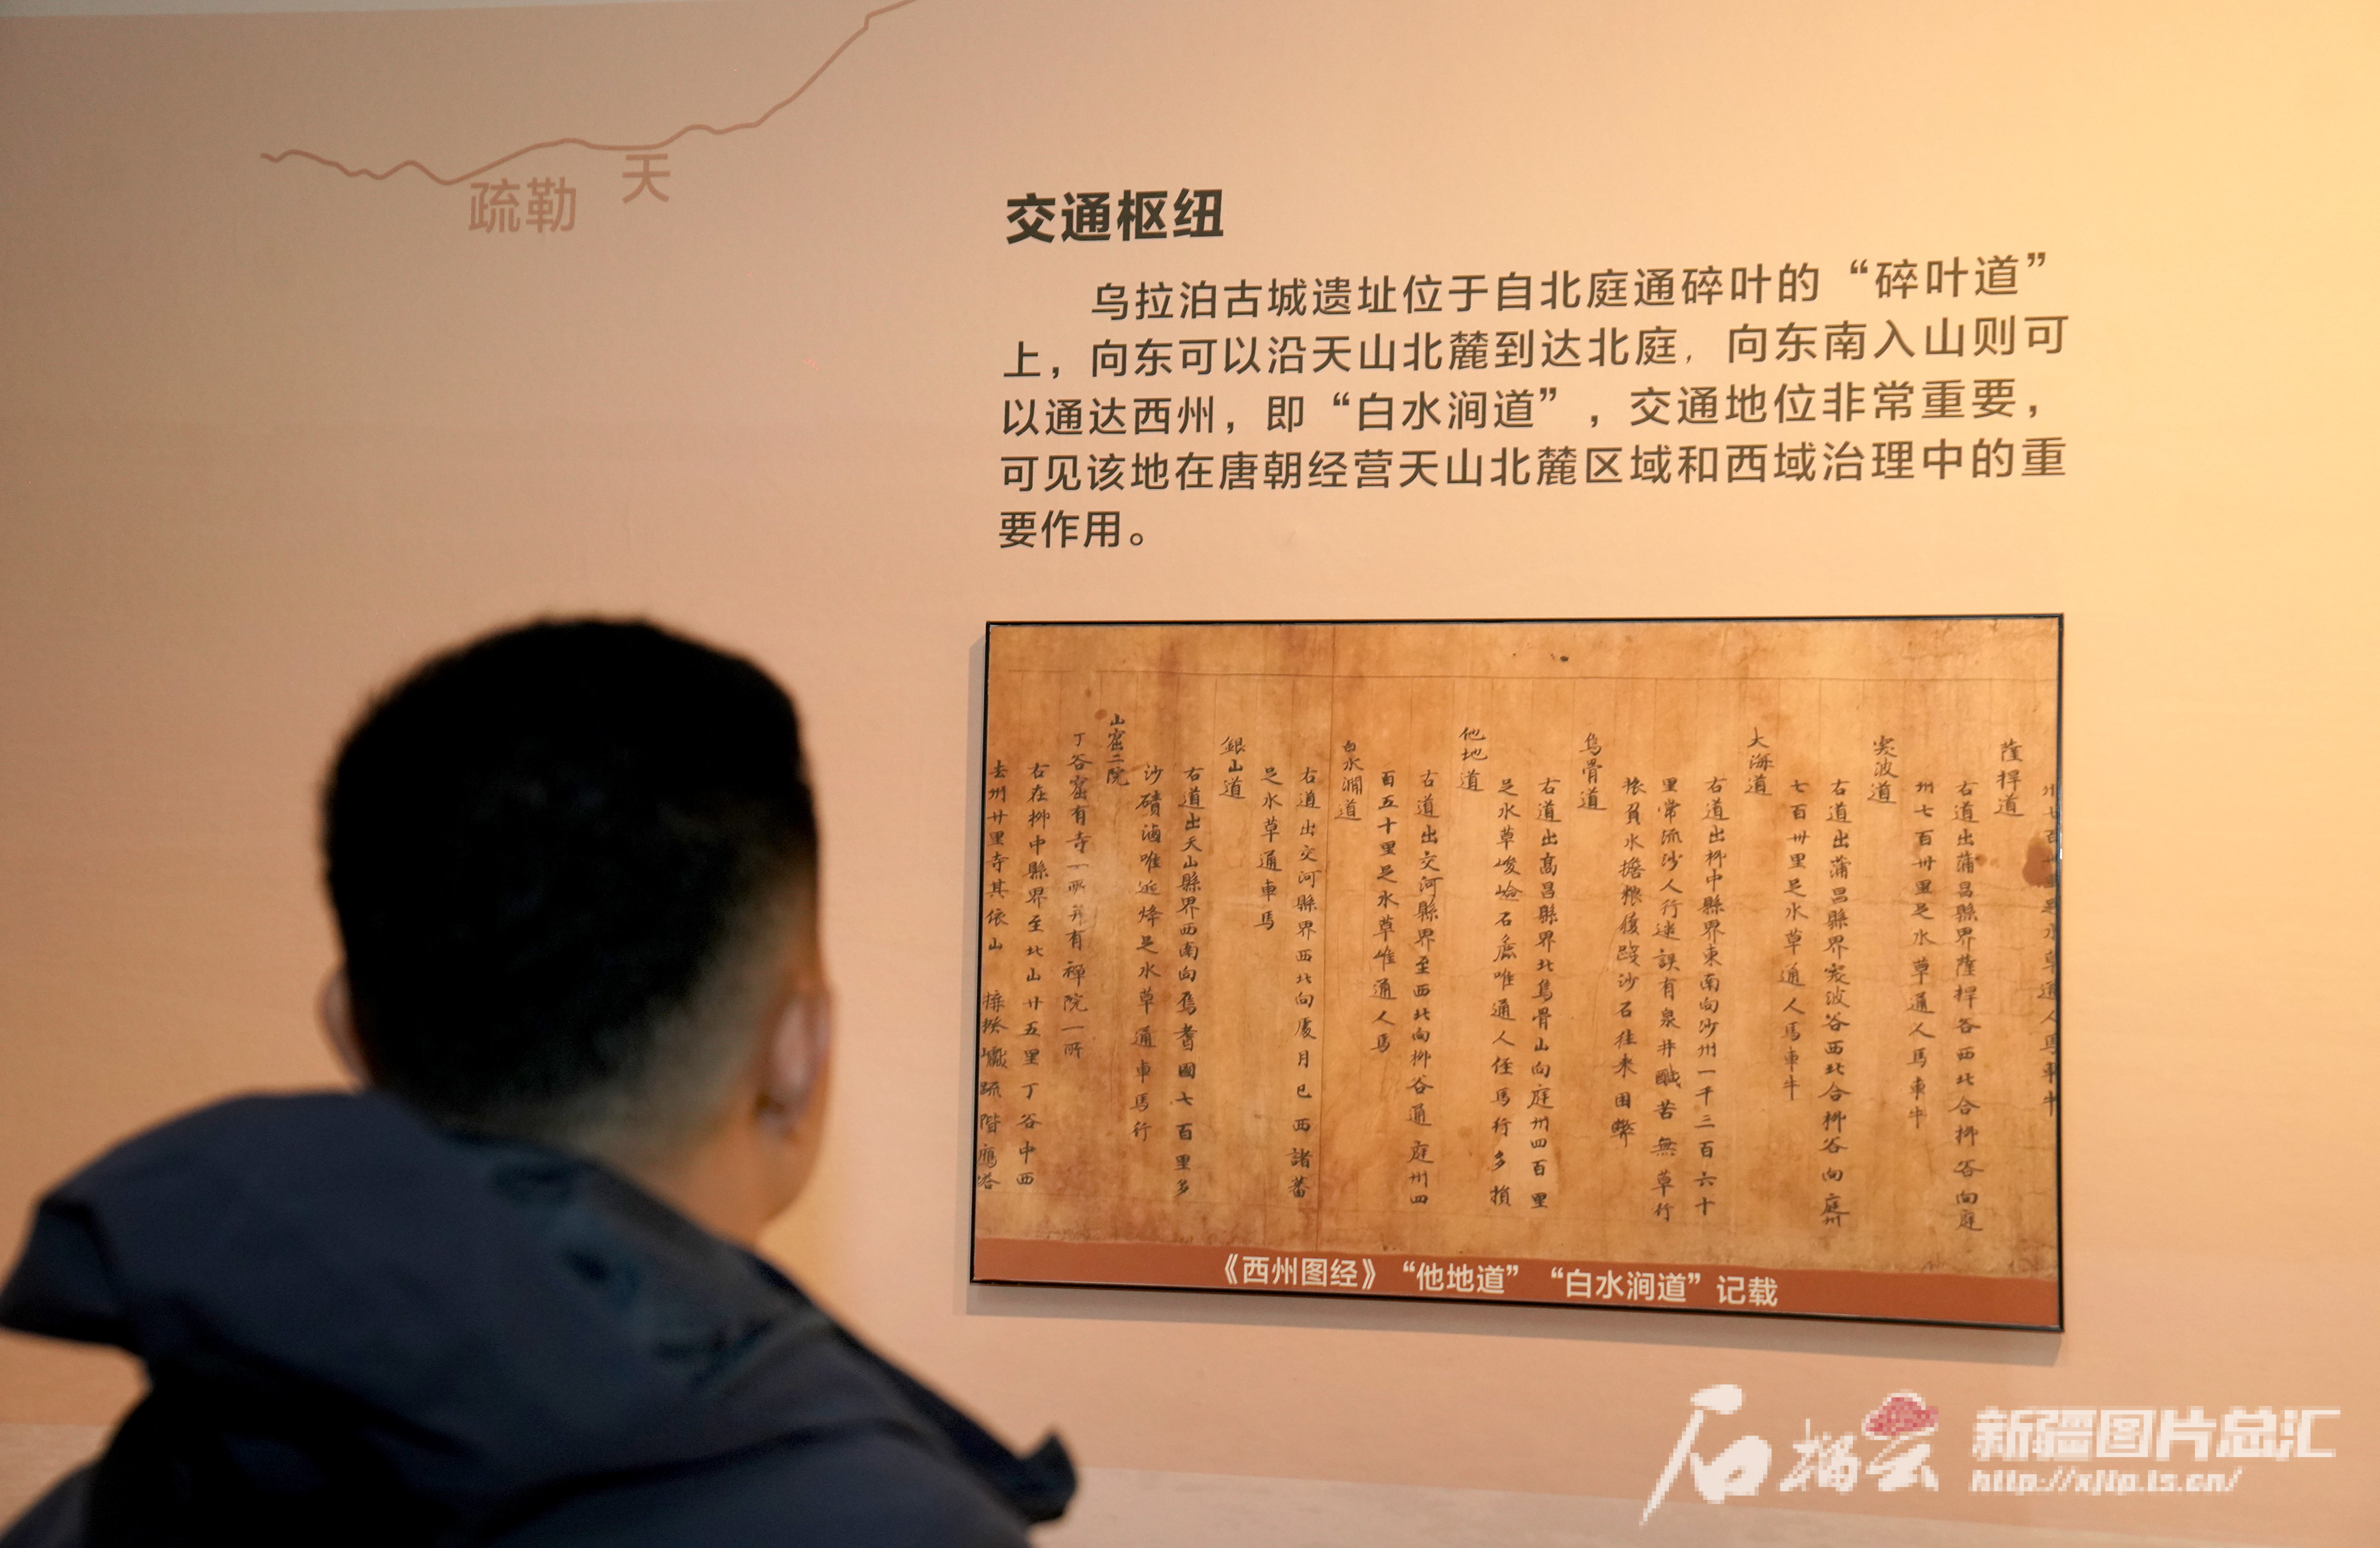 疏勒
天
交通枢纽
乌拉泊古城遗址位于自北庭通碎叶的“碎叶道”
上，向东可以沿天山北麓到达北庭，向东南入山则可
以通达西州，即“白水涧道”，交通地位非常重要，
可见该地在唐朝经营天山北麓区域和西域治理中的重
要作用。
州七百卅里足水草通人馬車牛
右道出蒲昌縣界薩捍谷西北合柳谷向庭
州七百卅里足水草通人馬車牛
突波道
右道出蒲昌縣界突波谷西北合柳谷向庭州
七百卅里足水草通人馬車牛
大海道
右道出柳中縣界東南向沙州一千三百六十
里常流沙人行迷誤有泉井鹹苦無草行
旅負水擔粮履踐沙石往来困弊
烏骨道
右道出高昌縣界北烏骨山向庭州四百里
足水草峻嶮石麁唯通人徑馬行多損
他地道
右道出交河縣界至西北向柳谷通庭州四
百五十里足水草唯通人馬
白水澗道
右道出交河縣界西北向處月已西諸蕃
足水草通車馬
銀山道
右道出天山縣界西南向焉耆國七百里多
沙磧滷唯近烽足水草通車馬行
山窟二院
丁谷窟有寺一所并有禪院一所
右在柳中縣界至北山廿五里丁谷中西
去州廿里寺其依山
《西州图经》“他地道”“白水涧道”记载
石榴云
新疆图片总汇
http://xjlp.ts.cn/